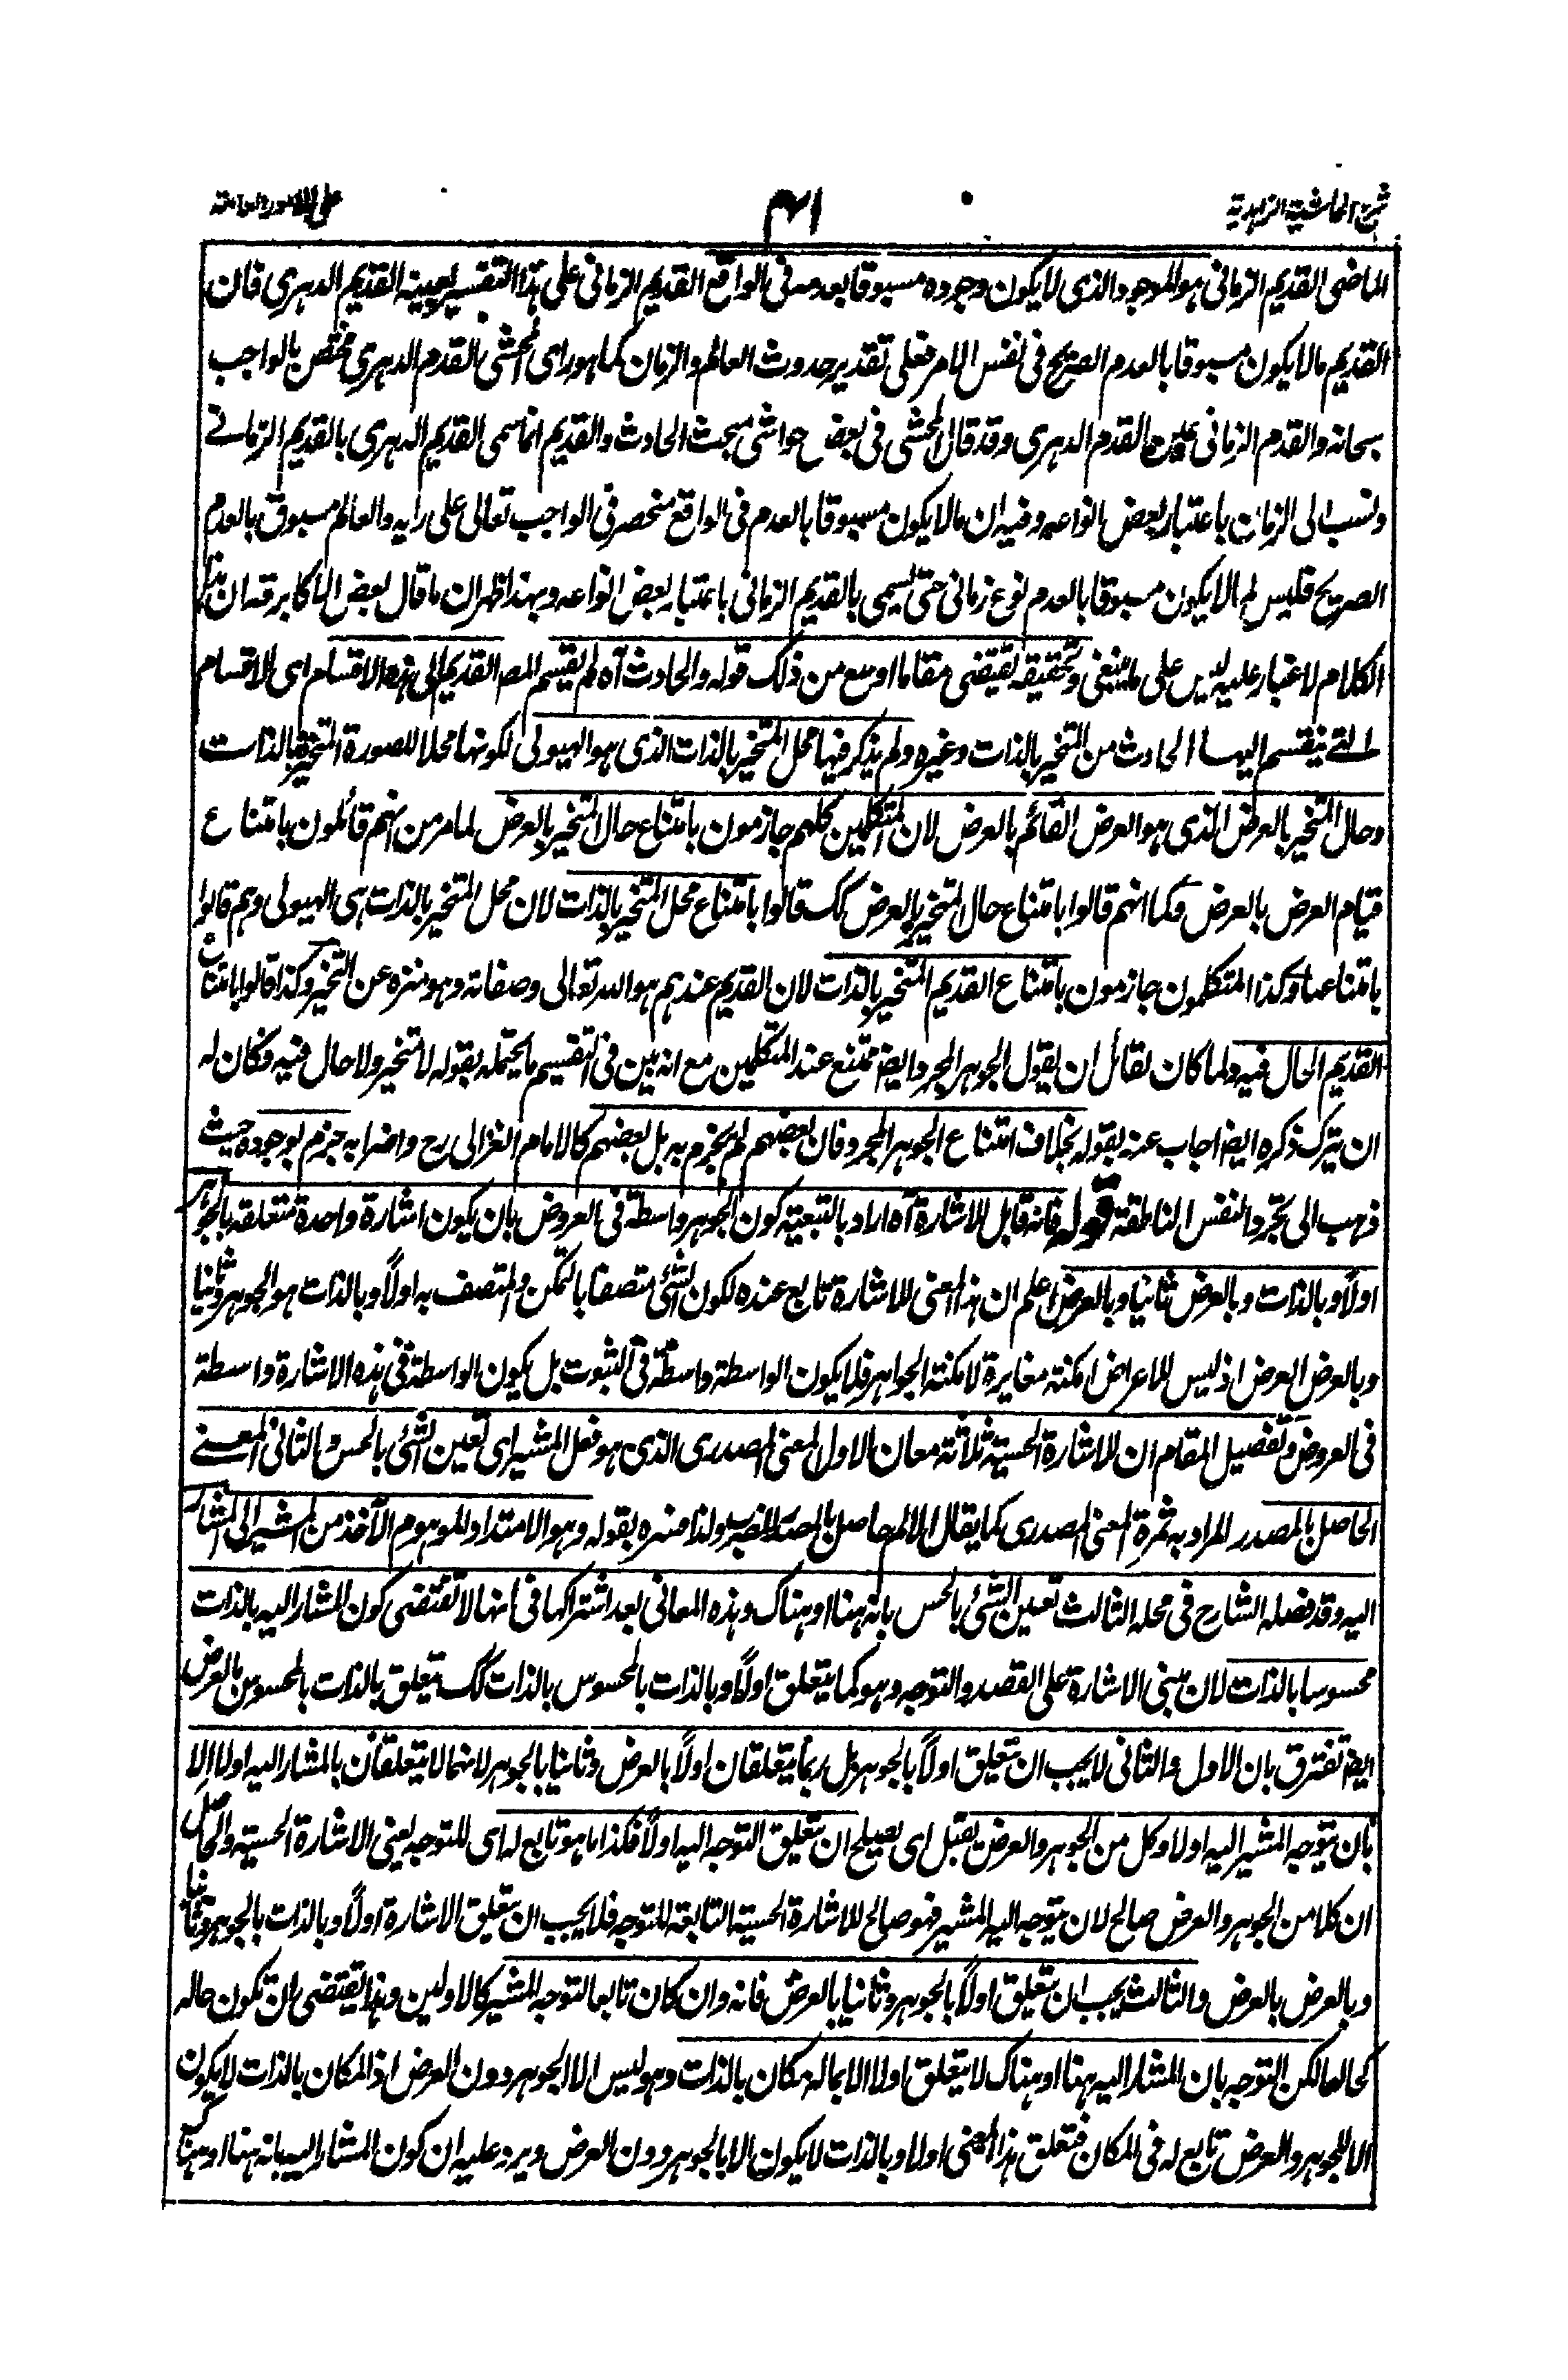 شرح الحاشية الزاهدية
١٤١
على الامور العامة
الماضى القديم الزمانى هو الموجود الذى لا يكون وجوده مسبوقا بعدمه فى الواقع القديم الزمانى على هذا التفسير بعينه القديم الدهرى فان
القديم ما لا يكون مسبوقا بالعدم الصريح فى نفس الامر فعلى تقدير حدوث العالم والزمان كما هو راى المحشى فالقدم الدهرى مختص بالواجب
سبحانه والقدم الزمانى عين القدم الدهرى وقد قال المحشى فى بعض حواشى مبحث الحادث والقديم انما سمى القديم الدهرى بالقديم الزمانے
ونسب الى الزمان باعتبار بعض انواعه وفيه ان ما لا يكون مسبوقا بالعدم فى الواقع منحصر فى الواجب تعالى على رايه والعالم مسبوق بالعدم
الصريح فليس لما لا يكون مسبوقا بالعدم نوع زمانى حتى يسمى بالقديم الزمانى باعتبار بعض انواعه وبهذا ظهر ان ما قال بعض الاكابر قه ان هذا
الكلام لا غبار عليه ليس على ما ينبغى وتحقيقه يقتضى مقاما اوسع من ذلك قوله والحادث آه لم يقسم المص القديم الى هذه الاقسام اى الاقسام
التے ينقسم اليها الحادث من المتحيز بالذات وغيره ولم يذكر فيها محل المتحيز بالذات الذى هو الهيولى لكونها محلا للصورة المتحيزة بالذات
وحال المتحيز بالعرض الذى هو العرض القائم بالعرض لان المتكلمين كلهم جازمون بامتناع حال المتحيز بالعرض لما مر من انهم قائلون بامتناع
قيام العرض بالعرض وكما انهم قالوا بامتناع حال المتحيز بالعرض كك قالوا بامتناع محل المتحيز بالذات لان محل المتحيز بالذات هى الهيولى وهم قالوا
بامتناعها وكذا المتكلمون جازمون بامتناع القديم المتحيز بالذات لان القديم عندهم هو الله تعالى وصفاته وهو منزه عن التحيز وكذا قالوا بامتناع
القديم الحال فيه ولما كان لقائل ان يقول الجوهر المجرد ايضا ممتنع عند المتكلمين مع انه بين فى التقسيم ما يحتمله بقوله لا متحيز ولا حال فيه فكان له
ان يترك ذكره ايضا اجاب عنه بقوله بخلاف امتناع الجوهر المجرد فان بعضهم لم يجزم به بل بعضهم كالامام الغزالى رح واضرابه جزم بوجوده حيث
ذهب الى تجرد النفس الناطقة قوله فانه قابل للاشارة آه اراد بالتبعية كون الجوهر واسطة فى العروض بان يكون اشارة واحدة متعلقه بالجوهر
اولًا وبالذات وبالعرض ثانيا وبالعرض اعلم ان هذا المعنى للاشارة تابع عنده لكون الشئ متصفا بالتمكن والمتصف به اولًا وبالذات هو الجوهر وثانيا
وبالعرض العرض اذ ليس للاعراض امكنة مغايرة لامكنة الجواهر فلا يكون الواسطة واسطة فى الثبوت بل يكون الواسطة فى هذه الاشارة واسطة
فى العروض وتفصيل المقام ان للاشارة الحسية ثلاثة معان الاول المعنى المصدرى الذى هو فعل المشير اى تعين الشئ بالحس والثانى المعنے
الحاصل بالمصدر المراد به ثمرة المعنى المصدرى كما يقال الالم حاصل بالمصدر للضرب ولذا فسره بقوله وهو الامتداد الموهوم الآخذ من المشير الى المشار
اليه وقد فصله الشارح فى محله الثالث تعيين الشئ بالحس بانه هنا او هناك وهذه المعانى بعد اشتراكها فى انها لا تقتضى كون المشار اليه بالذات
محسوسا بالذات لان مبنى الاشارة على القصد والتوجه وهو كما يتعلق اولًا وبالذات بالمحسوس بالذات كك يتعلق بالذات بالمحسوس بالعرض
ايضا تفترق بان الاول والثانى لا يجب ان يتعلق اولًا بالجوهر بل ربما يتعلقان اولًا بالعرض وثانيا بالجوهر لانهما لا يتعلقان بالمشار اليه اولا الا
بان يتوجه المشير اليه اولا وكل من الجوهر والعرض يقبل اى يصلح ان يتعلق التوجه اليه اولًا فكذا ما هو تابع له اى للتوجه يعنى الاشارة الحسية والحاصل
ان كلا من الجوهر والعرض صالح لان يتوجه اليه المشير فهو صالح للاشارة الحسية التابعة للتوجه فلا يجب ان يتعلق الاشارة اولًا وبالذات بالجوهر وثانيا
وبالعرض بالعرض والثالث يجب ان يتعلق اولًا بالجوهر وثانيا بالعرض فانه وان كان تابعا لتوجه المشير كالاولين وهذا يقتضى ان تكون حاله
كحالهما لكن التوجه بان المشار اليه هنا او هناك لا يتعلق اولا الا بما له مكان بالذات وهو ليس الا الجوهر دون العرض اذ المكان بالذات لا يكون
الا للجوهر والعرض تابع له فى المكان فتعلق هذا المعنى اولا وبالذات لا يكون الا بالجوهر دون العرض ويرد عليه ان كون المشار اليه بانه هنا او هناك